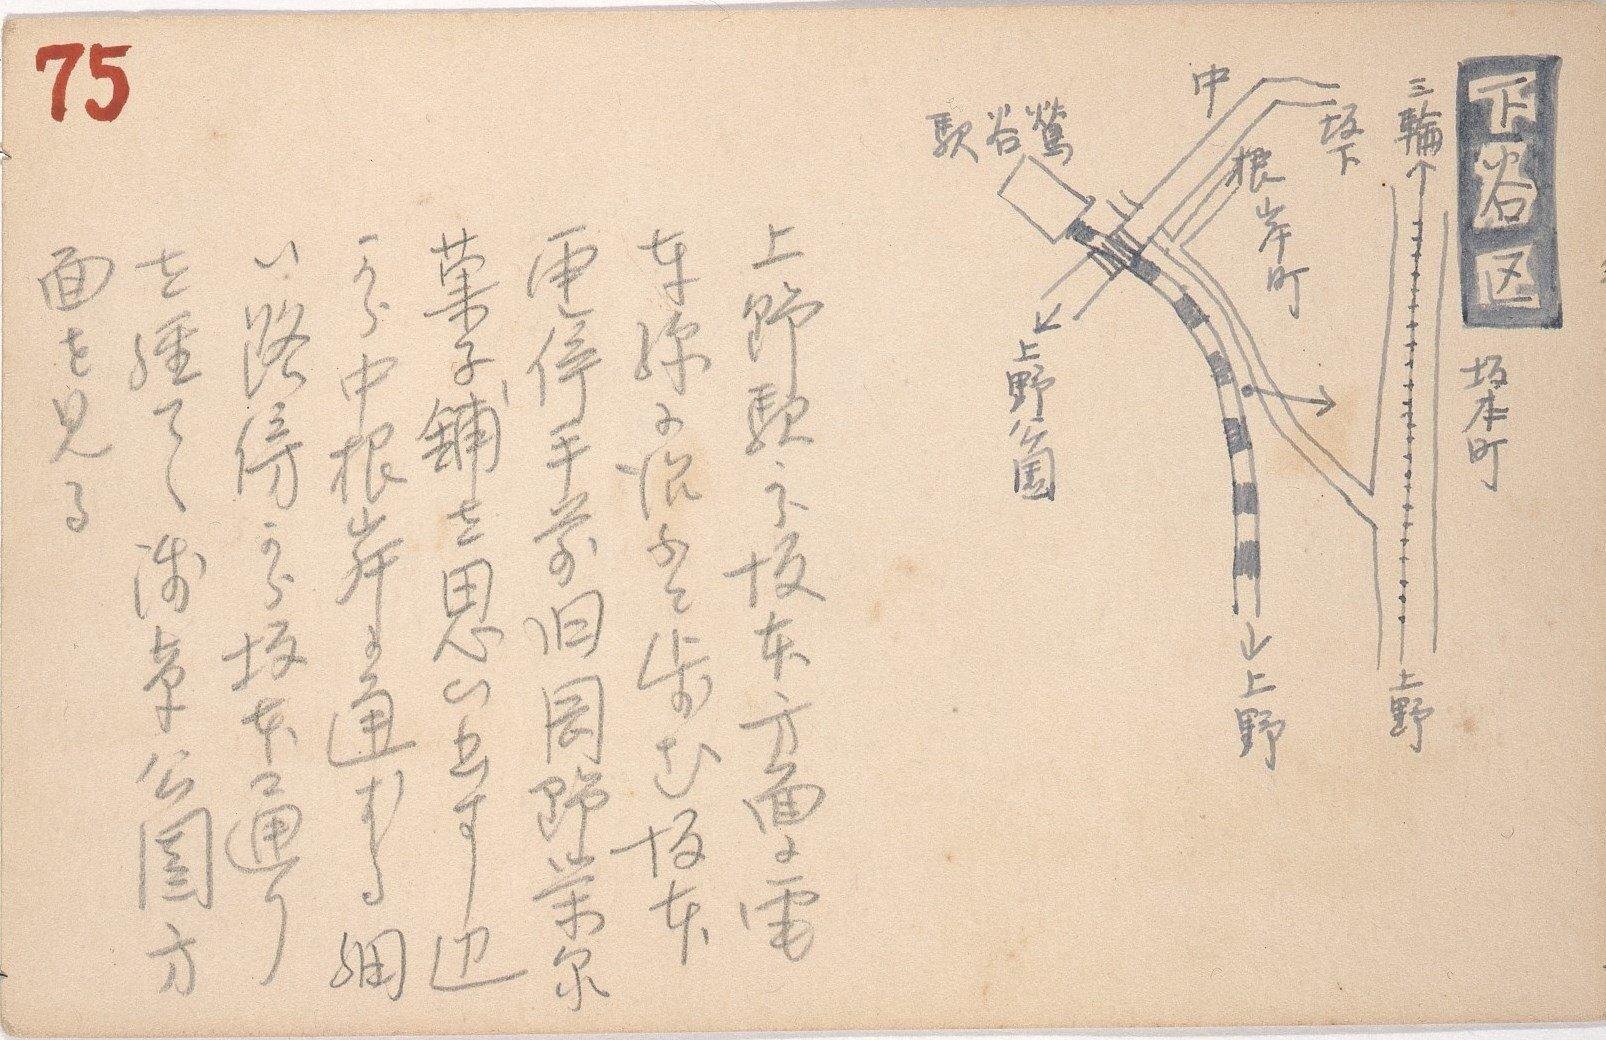 75
下谷区
坂本町
三輪
上野
坂下
中
根岸町
鶯谷駅
上野
上野公園
上野駅より坂本方面に電
車線に沿ふて歩む坂本
電停手前旧岡野栄泉
菓子舗を思ひ出す辺
から中根岸に通ずる細
い路傍から坂本通り
を経て浅草公園方
面を見る